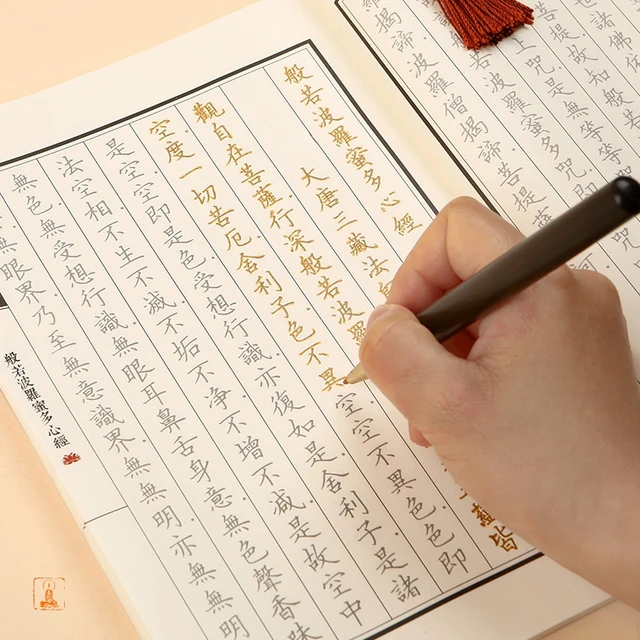 諸佛
菩提故知般
上咒是無等等咒
若波羅蜜多咒即
羅揭諦波羅僧揭諦菩提薩
般若波羅蜜多心經
大唐三藏法
觀自在菩薩行深般若波羅
蘊皆
空度一切苦厄舍利子色不異空空不異色色即
是空空即是色受想行識亦復如是舍利子是諸
法空相不生不滅不垢不淨不增不減是故空中
無色無受想行識無眼耳鼻舌身意無色聲香味
無眼界乃至無意識界無無明亦無無明
般若波羅蜜多心經